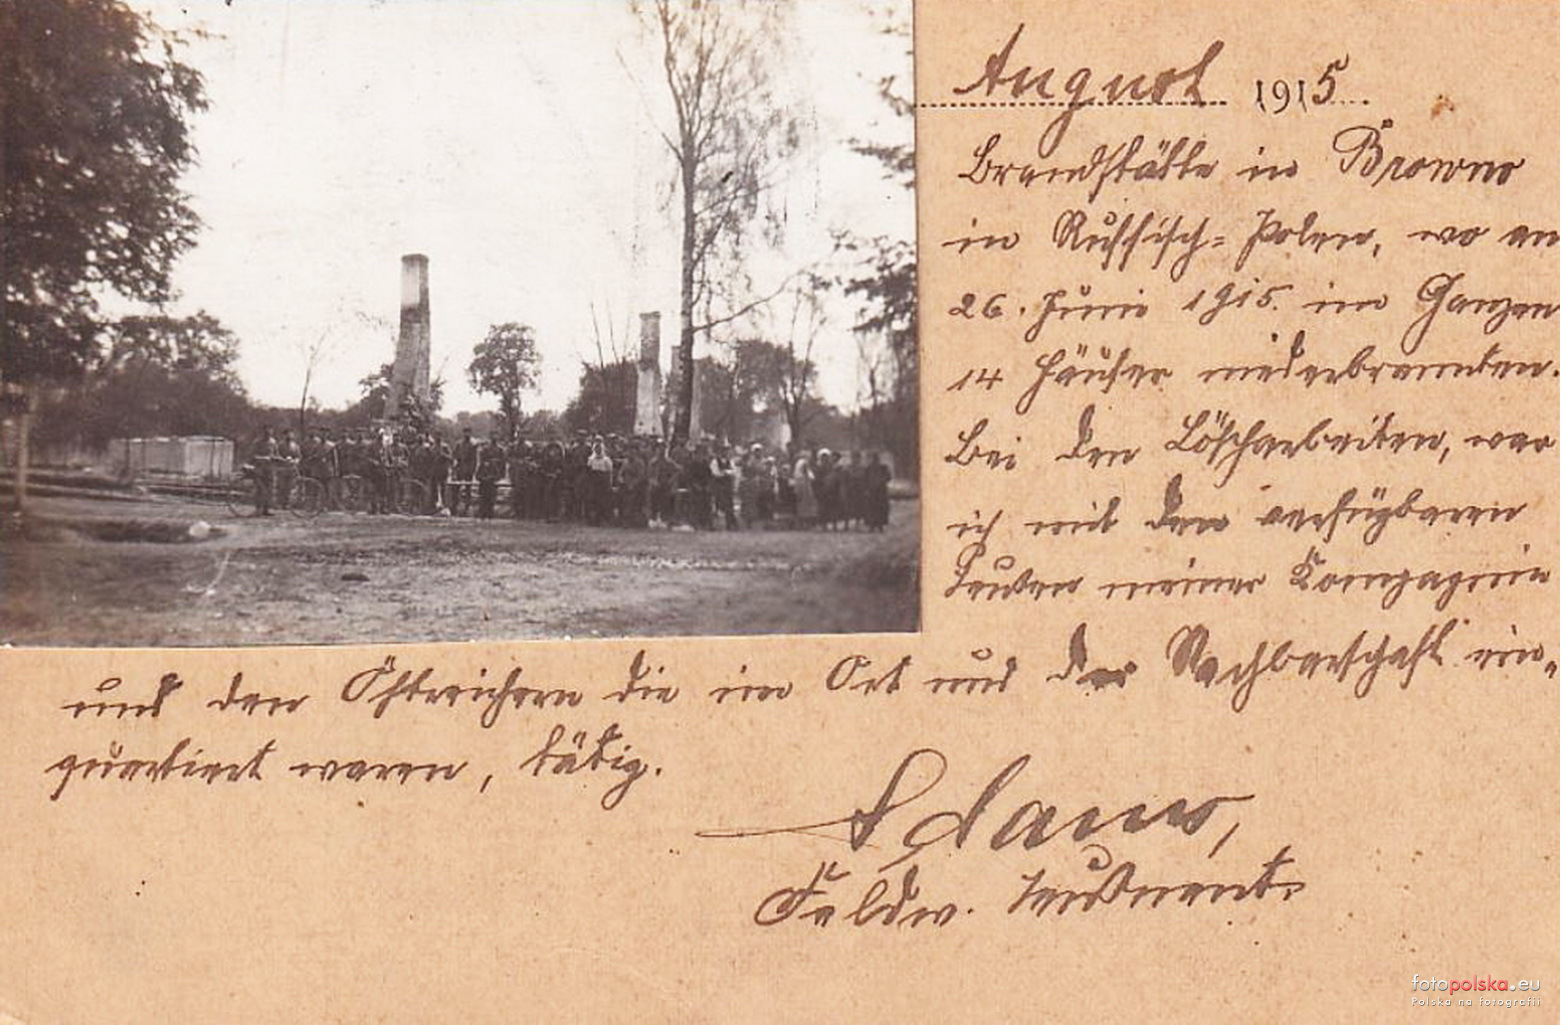 August 1915.
Brandstätte in Browno
in Russisch-Polen, wo am
26. Juni 1915. im Ganzen
14 Häuser niederbrannten.
Bei den Löscharbeiten, war
ich mit den verfügbaren
Leuten meiner Kompagnie
und den Östreichern die im Ort und der Nachbarschaft ein-
quartiert waren, tätig.
Adam,
Feldw. Leutnant.
fotopolska.eu
Polska na fotografii